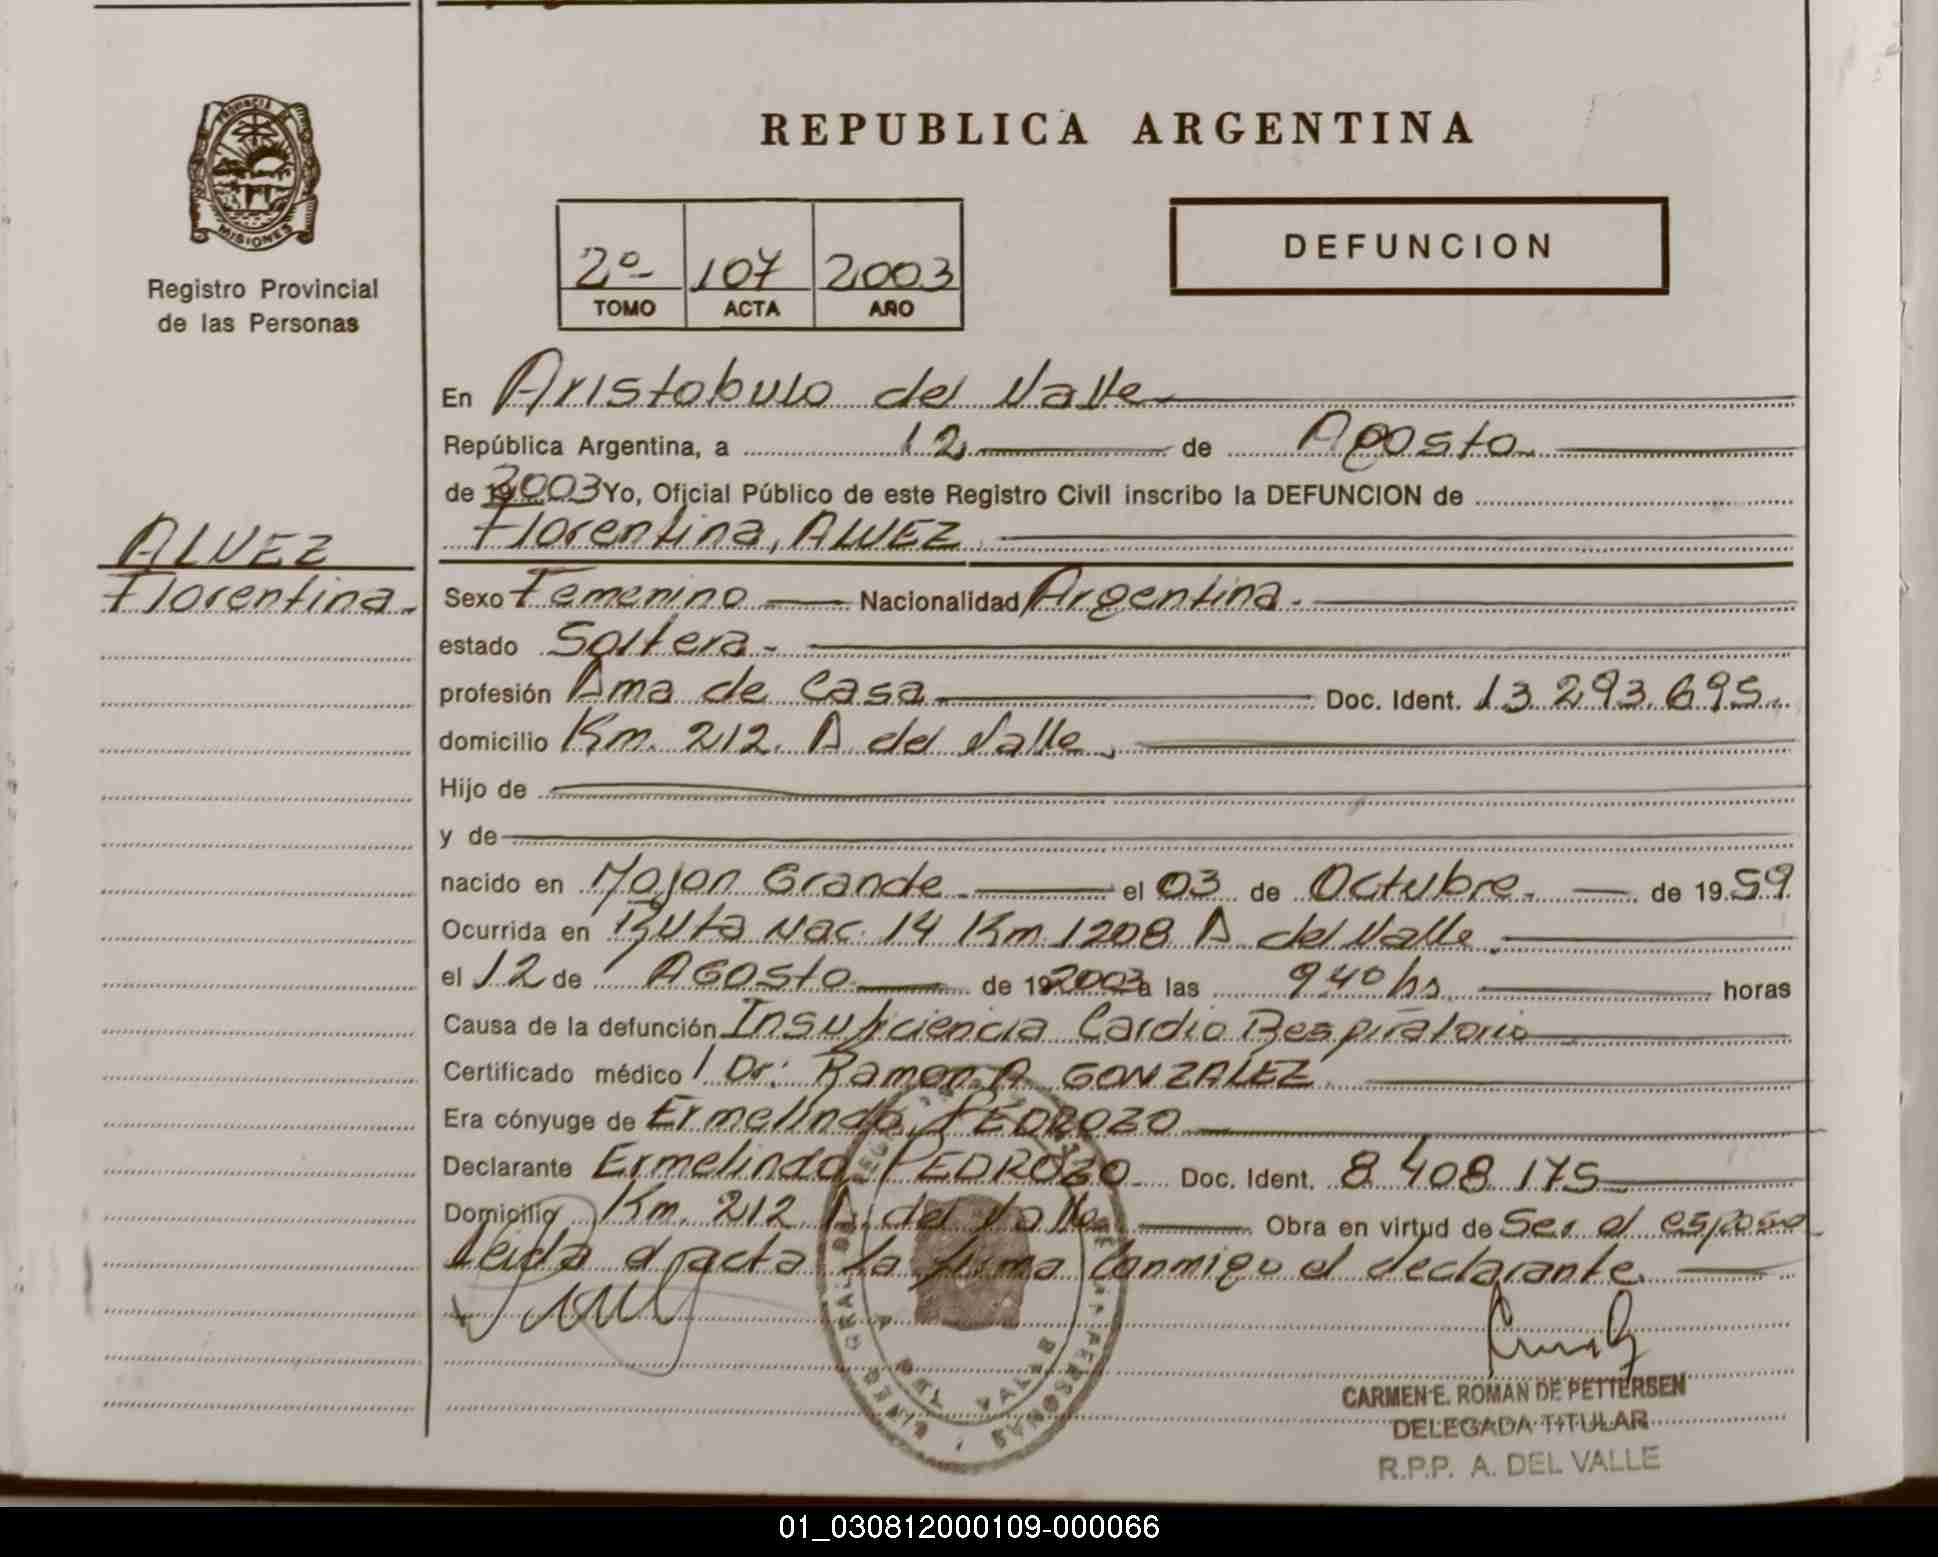 PROVINCIA DE
MISIONES
Registro Provincial
de las Personas
REPUBLICA ARGENTINA
2º 107 2003
TOMO ACTA AÑO
DEFUNCION
En Aristobulo del Valle
República Argentina, a 12 de Agosto
de 2003 Yo, Oficial Público de este Registro Civil inscribo la DEFUNCION de
Florentina, ALVEZ
ALVEZ
Florentina.
Sexo Femenino Nacionalidad Argentina.
estado Soltera.
profesión Ama de Casa Doc. Ident. 13.293.695.
domicilio Km. 212. A del Valle.
Hijo de
y de
nacido en Mojon Grande el 03 de Octubre. de 1959
Ocurrida en Ruta Nac. 14 Km 1208 A del Valle.
el 12 de AGosto de 192003 a las 940 hs. horas
Causa de la defunción Insuficiencia Cardio Respiratorio
Certificado médico Dr: Ramon A GONZALEZ
Era cónyuge de Ermelindo PEDROZO
Declarante Ermelindo PEDROZO Doc. Ident. 8 408 175
Domicilio Km. 212 A. del Valle Obra en virtud de Ser el esposo
Leida el acta la firma Conmigo el declarante.
CARMEN E. ROMAN DE PETTERSEN
DELEGADA TITULAR
R.P.P. A. DEL VALLE
01_030812000109-000066